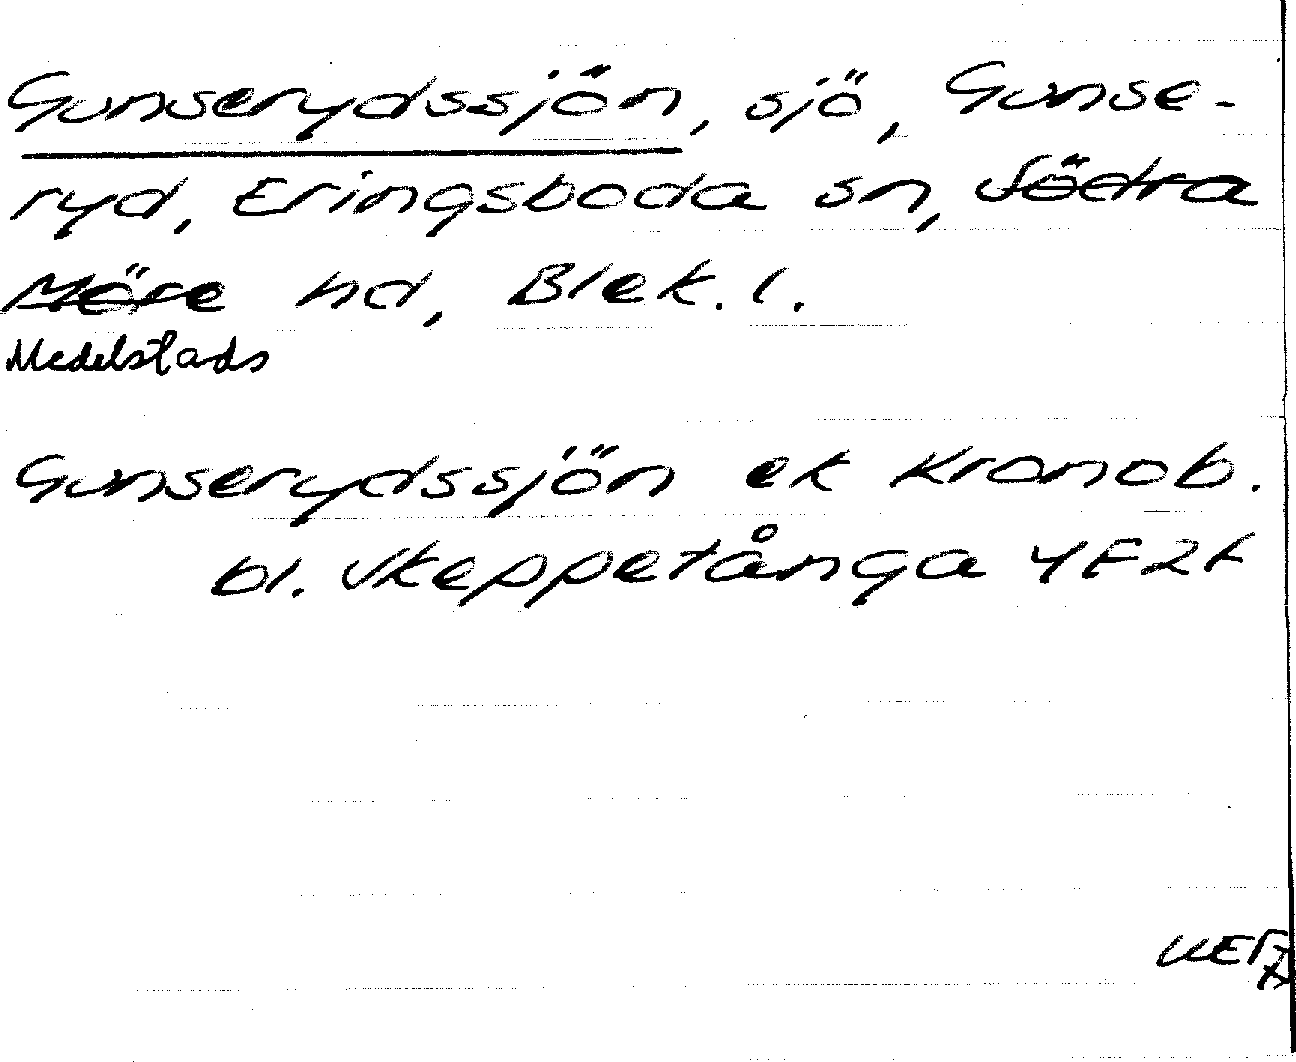 Gunserydssjön, sjö, Gunse-
ryd, Eringsboda sn, Södra
Möre hd, Blek. l.
Medelstads
Gunserydssjön ek Kronob.
bl. Skeppetånga 4F2f